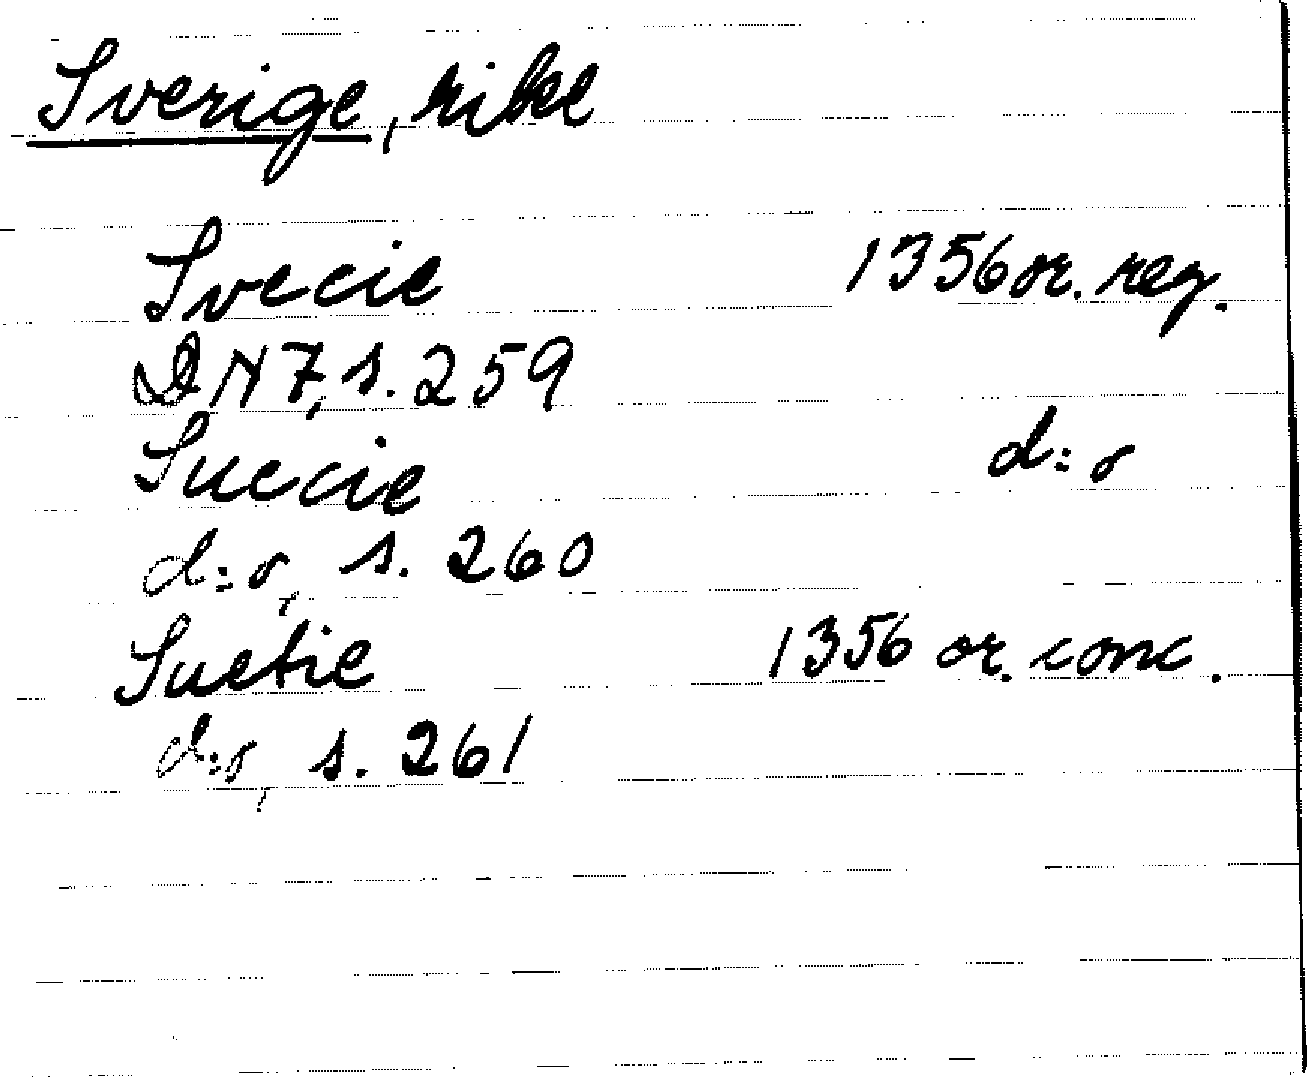 Sverige, rike
Svecie 1356 or. reg.
DN 7, s. 259
Suecie d:o
d:o, s. 260
Suetie 1356 or. conc.
d:o, s. 261